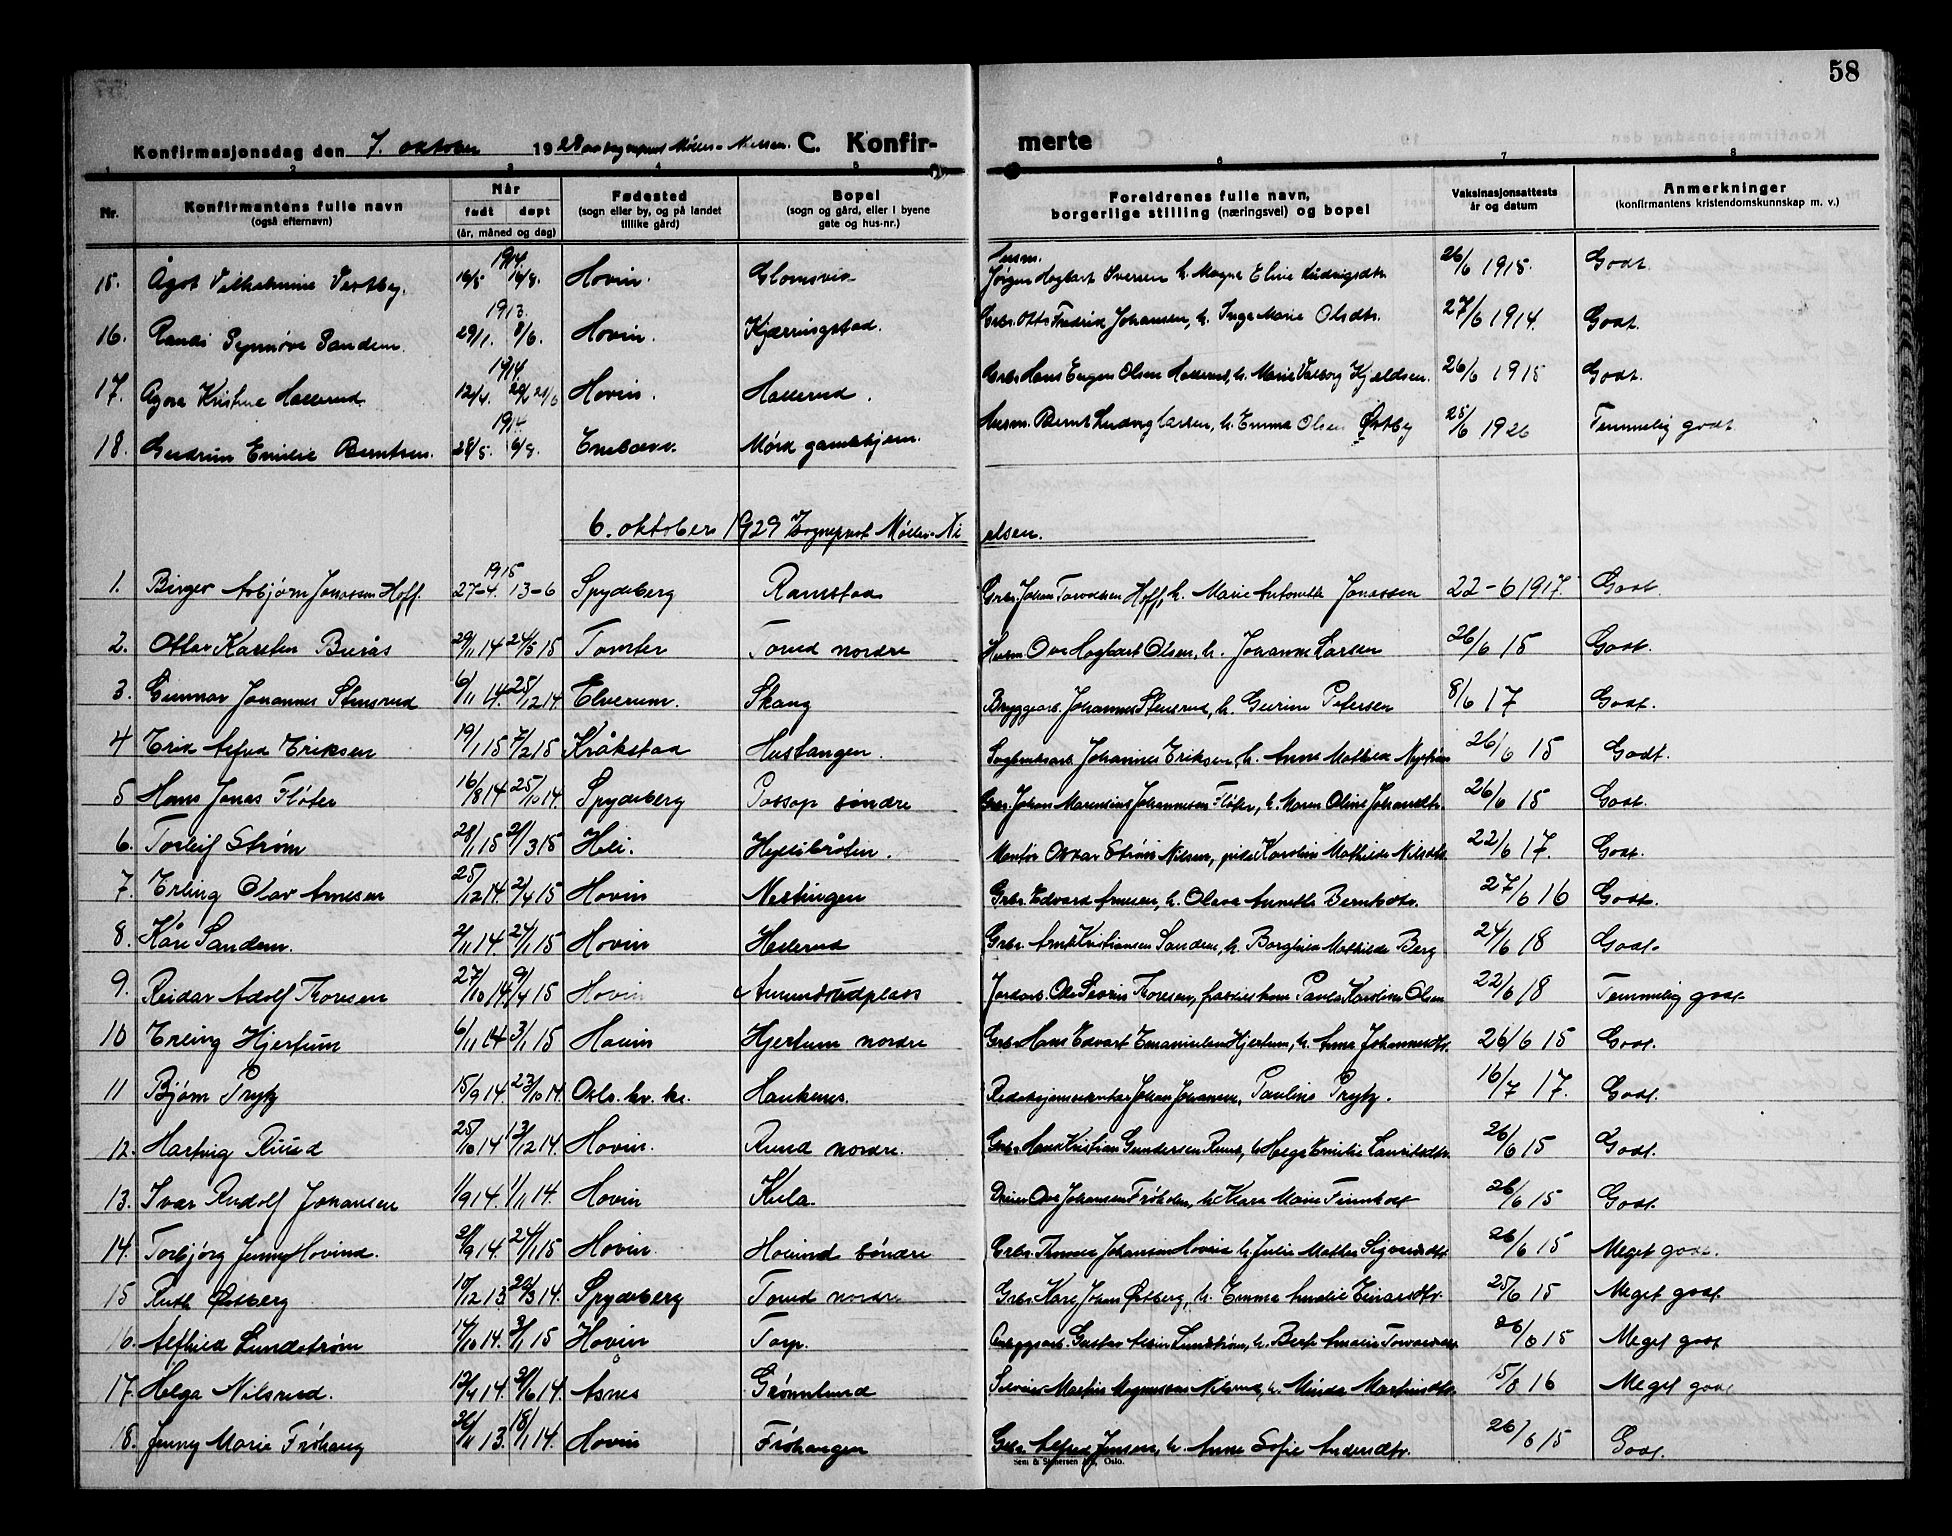 58
Konfirmasjonsdag den 7. oktober 1928 av sogneprest Møller-Nielsen. C. Konfir-
merte
1 2 3 4 5 6 7 8
Nr.
Konfirmantens fulle navn
(også efternavn)
Når
født døpt
(år, måned og dag)
Fødested
(sogn eller by, og på landet
tillike gård)
Bopel
(sogn og gård, eller i byene
gate og hus-nr.)
Foreldrenes fulle navn,
borgerlige stilling (næringsvei) og bopel
Vaksinasjonsattests
år og datum
Anmerkninger
(konfirmantens kristendomskunnskap m. v.)
1914.
15. Ågot Vilhelmine Vestby. 16/5 16/8. Hovin. Glomsvik Husm. Jørgen Hagbart Iversen h. Magna Elvine Ludvigsdtr. 26/6 1915. Godt.
1913.
16. Randi Synnøve Sandem. 29/1. 8/6. Hovin. Kjærringstad. Grbr. Otto Fredrik Johansen, h. Inga Marie Olsdtr. 27/6 1914. Godt.
1914.
17. Agve Kristine Hallerud 12/4. 21/6 Hovin. Hallerud. Grbr. Hans Eugen Olsen Hallerud, h. Marie Valborg Kjeldsen. 26/6 1915 Godt.
1914.
18. Gudrun Emilie Berntsen. 28/5. 6/8. Enebakk. Mørk gamlehjem. Husm. Bernt Ludvig Larsen, h. Emma Olsen Østby 25/6 1926 Temmelig godt
6. oktober 1929 Sogneprest Møller-Nielsen.
1915
1. Birger Asbjørn Jonassen Hoff. 27-4. 13-6 Spydeberg Ramstad Grbr. Johan Torvaldsen Hoff, h. Marie Antonette Jonassen 22-6 1917. Godt.
2. Ottar Karsten Burås 29/11 14 24/5 15 Tomter Torud nordre Husm Ove Hagbart Olsen, h. Johanne Larsen 26/6 15 Godt.
3. Gunnar Johannes Stensrud 6/11 14. 25/12 14 Elverum. Skaug Bryggearb. Johannes Stensrud, h. Gurine Petersen 8/6 17 Godt.
4 Erik Alfred Eriksen 19/1 15 7/2 15 Kråkstad Hustangen. Sagbruksarb. Johannes Eriksen, h. Anne Mathilde Nystrøm 26/6 15 Godt.
5 Hans Jonas Fløter 16/8 14 25/10 14. Spydeberg Possop søndre Grbr. Johan Marensius Johannesen Fløter, h. Maren Oline Johansdtr. 26/6 15 Godt.
6. Torleif Strøm 28/1 15 21/3 15 Heli. Hyllibråten. Montør Oskar Strøm Nilsen, pike Karoline Mathilde Nilsdtr. 22/6 17. Godt.
7. Erling Olav Arnesen 25/12 14. 2/4 15 Hovin Nestingen Grbr. Edvard Arnesen, h. Olava Annette Berntsdtr. 27/6 16 Godt.
8. Kåre Sandem. 2/11 14. 24/1 15 Hovin Hallerud Grbr. Arnt Kristiansen Sandem, h. Borghild Mathilde Berg 24/6 18 Godt.
9. Reidar Adolf Thoresen 27/10 14 9/4 15 Hovin Amundrudplass Jordarb. Ole Severin Thoresen, fraskilt kone Paula Karoline Olsen 22/6 18 Temmelig godt
10 Erling Hjertum 6/11 14 3/1 15 Hovin Hjertum nordre Grbr. Hans Edvart Emanuelsen Hjertum, h. Anna Johannesdtr. 26/6 15 Godt.
11 Bjørn Prytz 15/9 14. 23/10 14. Oslo. kv. kl. Haukenes. Redaksjonssekretær Johan Johansen, Pauline Prytz. 16/7 17. Godt.
12. Hartvig Ruud 25/10 14 13/12 14. Hovin. Ruud nordre. Grbr. Hans Kristian Gundersen Ruud, h. Helga Emilie Lauritsdtr. 26/6 15 Godt.
13. Ivar Rudolf Johansen 1/9 14. 1/11 14. Hovin Kula. Ove Johansen Frøhden, h. Klara Marie Finnholt 26/6 15 Godt.
14. Torbjørg Jenny Hovind. 21/9 14. 24/1 15 Hovin. Hovind søndre Grbr. Thomas Johansen Hovin h. Julie Mathea Sigvardsdtr. 26/6 15 Meget godt.
15 Ruth Østberg 10/12 13 20/3 14. Spydeberg Torud nordre Grbr Karl Johan Østberg, h. Emma Amalie Einarsdtr. 25/6 15 Meget godt
16. Alfhild Lundstrøm 17/10 14. 3/1 15 Hovin Torp. Anleggsarb. Gustav Alvin Lundstrøm, h. Berte Amalie Torvaldsdtr 26/6 15 Meget godt
17. Helga Nilsrud. 12/4 14. 21/6 14. Åsnes Grønnlund Martin Magnussen Nilsrud, h. Minda Martinsdtr. 5/8 16 Meget godt
18. Jenny Marie Frøhaug 26/11 13. 18/1 14. Hovin Frøhaugen Grbr. Alfred Jensen, h. Anne Sofie Andersdtr. 26/6 15 Godt.
Sem & Stenersen A/S, Oslo.